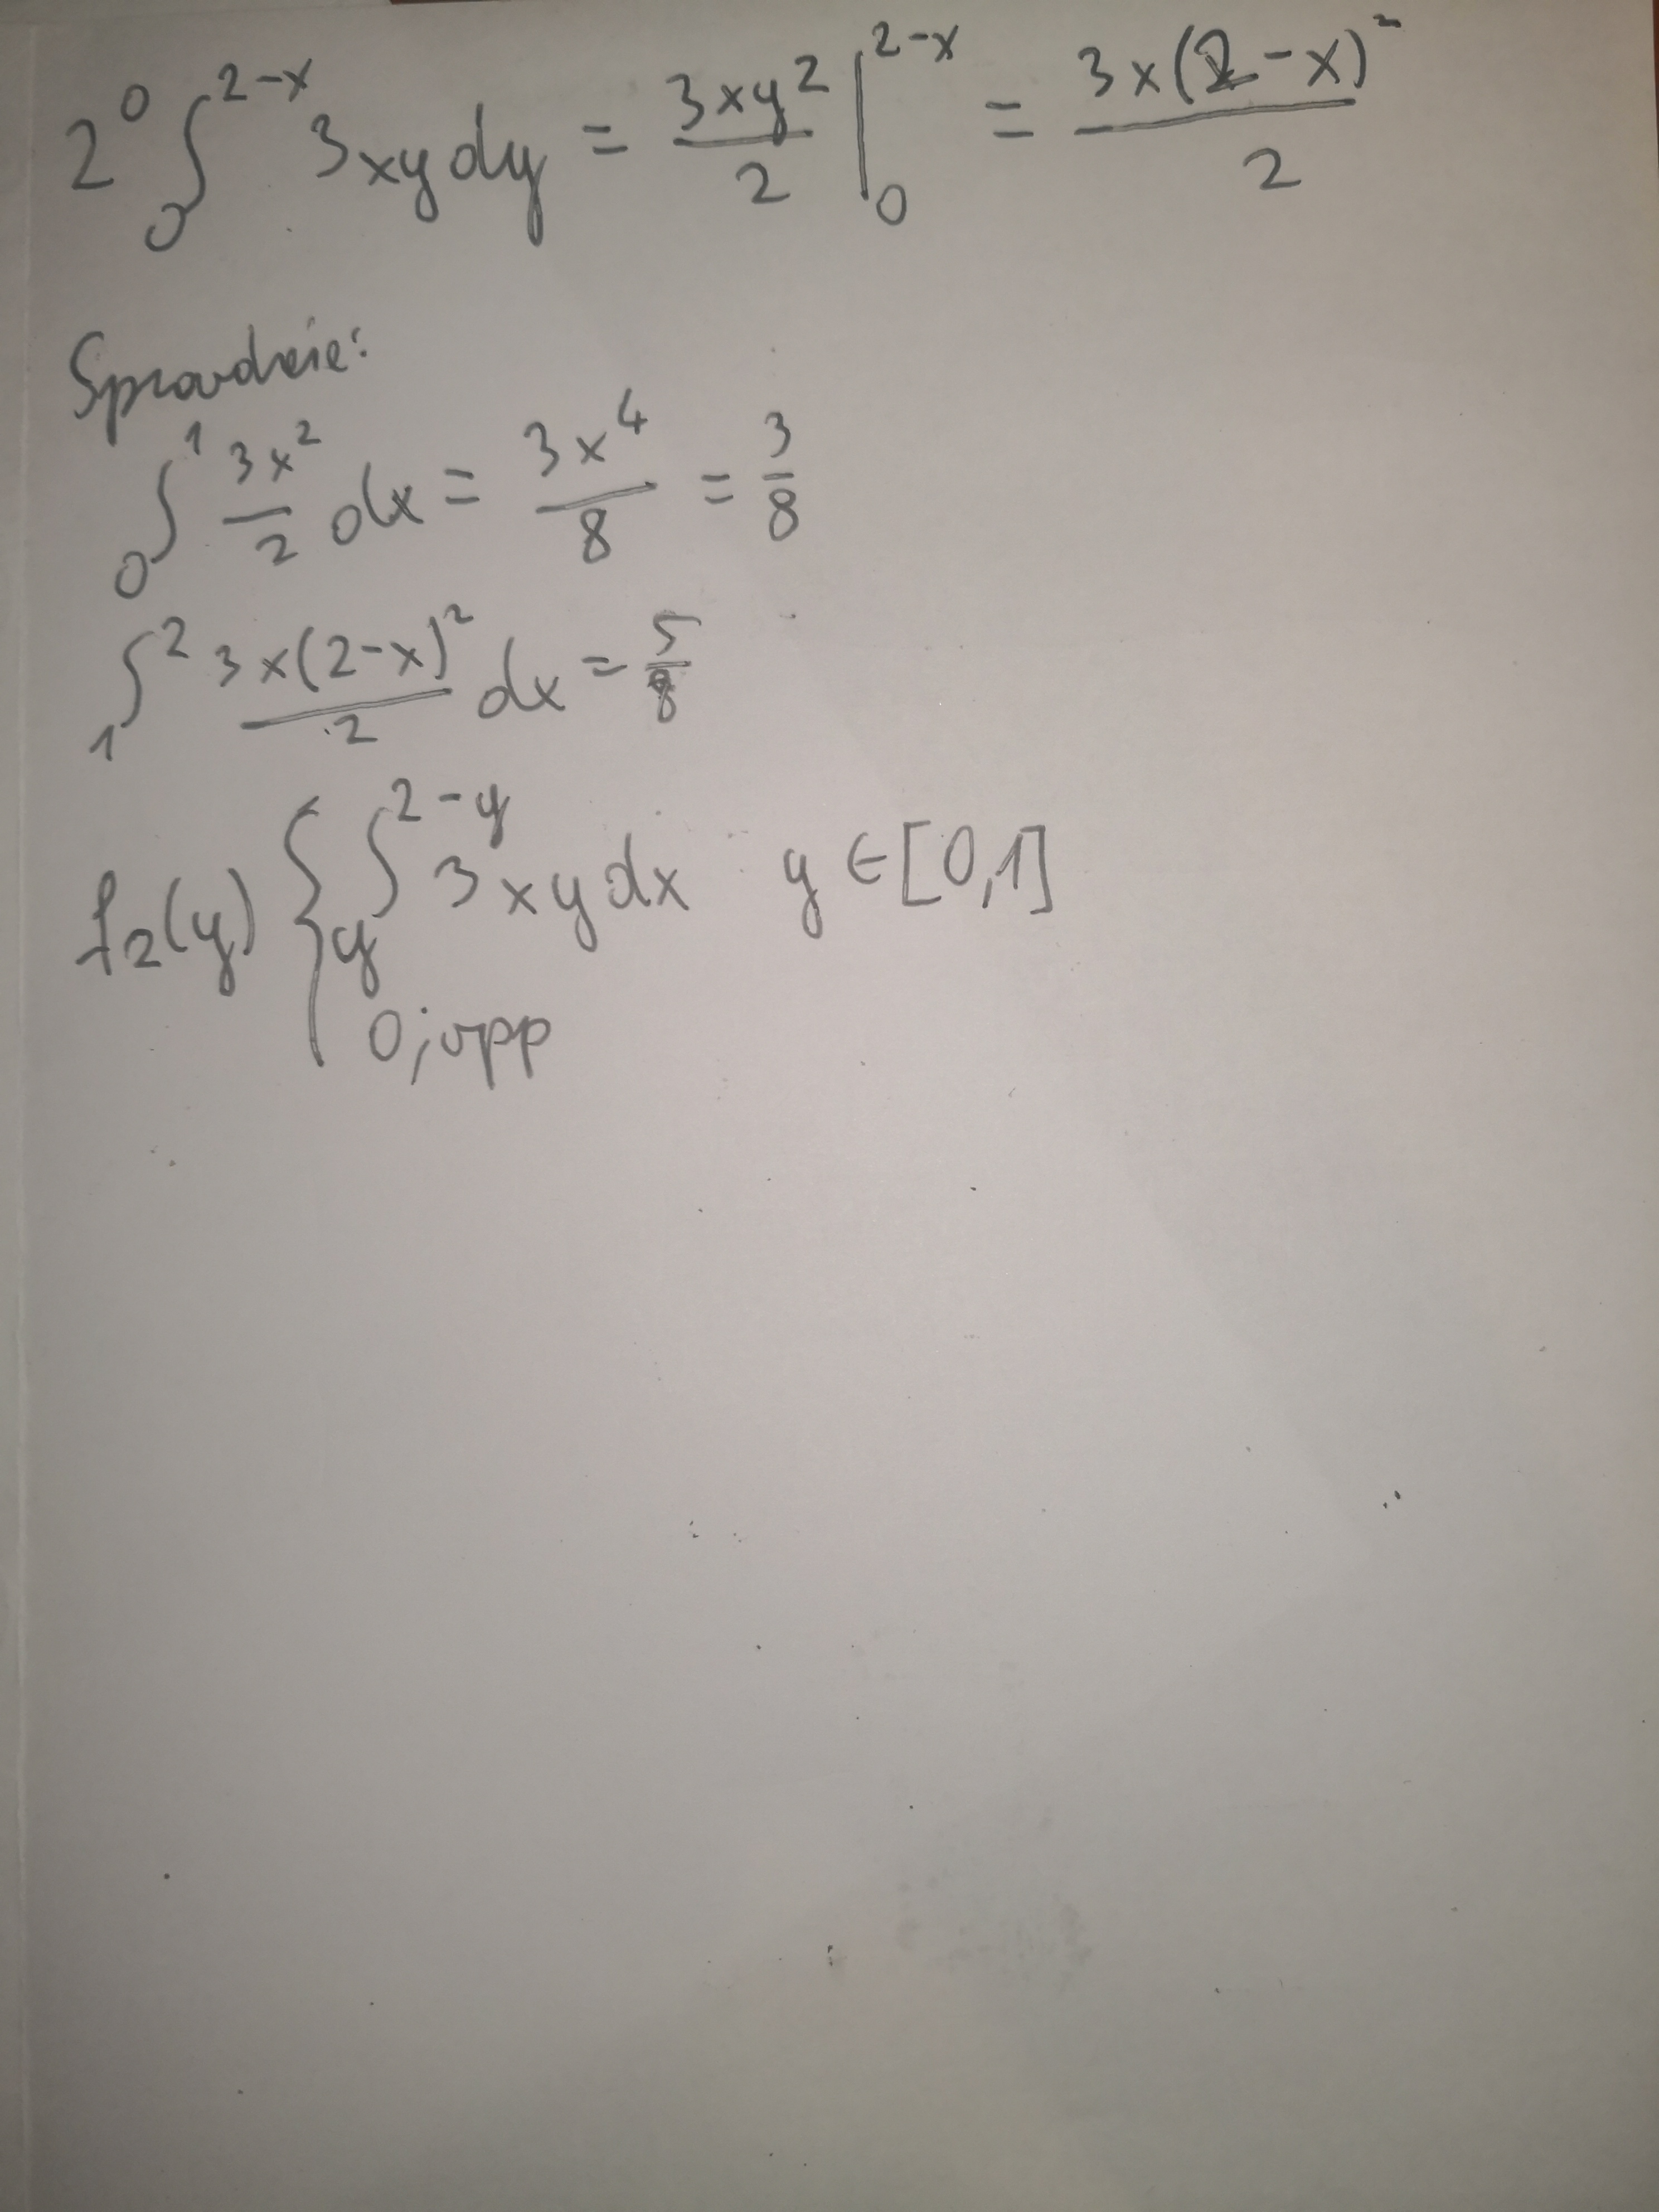 2° ∫₀^{2-x} 3xy dy = 3xy²/2 |₀^{2-x} = 3x(2-x)²/2
Sprawdzenie:
∫₀¹ 3x²/2 dx = 3x⁴/8 = 3/8
∫₁² 3x(2-x)²/2 dx = 5/8
f₂(y) { ∫_y^{2-y} 3xy dx y ∈ [0,1]
0; wpp